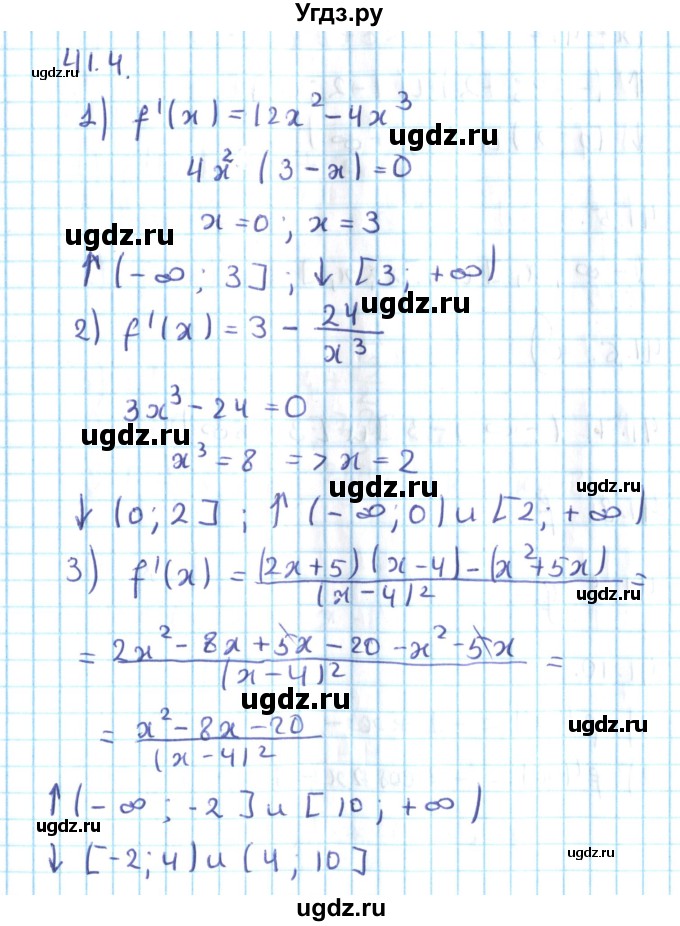 Угдз.ру
41.4.
ugdz.ru
1) f'(x) = 12x² - 4x³
ugdz.ru
4x² (3 - x) = 0
x = 0 ; x = 3
ugdz.ru
↑ (-∞ ; 3] ; ↓ [3 ; +∞)
ugdz.ru
2) f'(x) = 3 - 24/x³
3x³ - 24 = 0
ugdz.ru
x³ = 8 => x = 2
ugdz.ru
ugdz.ru
↓ (0 ; 2] ; ↑ (-∞ ; 0) и [2 ; +∞)
3) f'(x) = (2x+5)(x-4) - (x²+5x)/(x-4)² =
ugdz.ru
= 2x² - 8x + 5x - 20 - x² - 5x/(x-4)² =
ugdz.ru
= x² - 8x - 20/(x-4)²
ugdz.ru
↑ (-∞ ; -2] и [10 ; +∞)
ugdz.ru
↓ [-2 ; 4) и (4 ; 10]
ugdz.ru
ugdz.ru